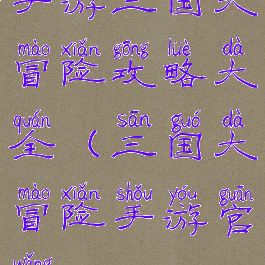 手游三国大
mào xiǎn gōng luè dà
冒险攻略大
quán sān guó dà
全（三国大
mào xiǎn shǒu yóu guān
冒险手游官
wǎng